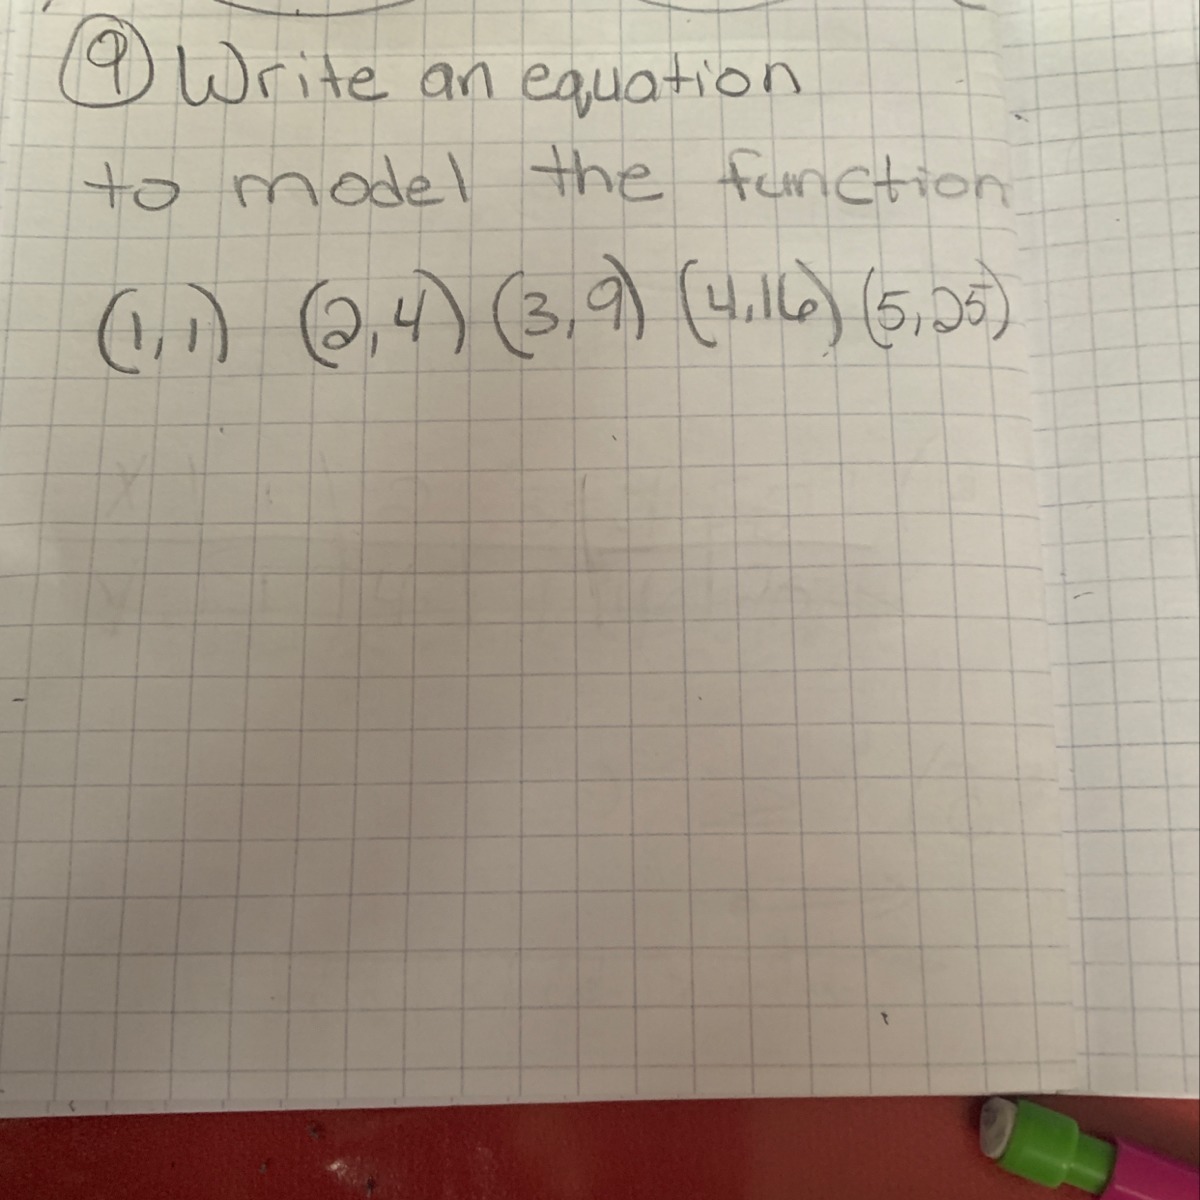 9 Write an equation
to model the function
(1,1) (2,4) (3,9) (4,16) (5,25)